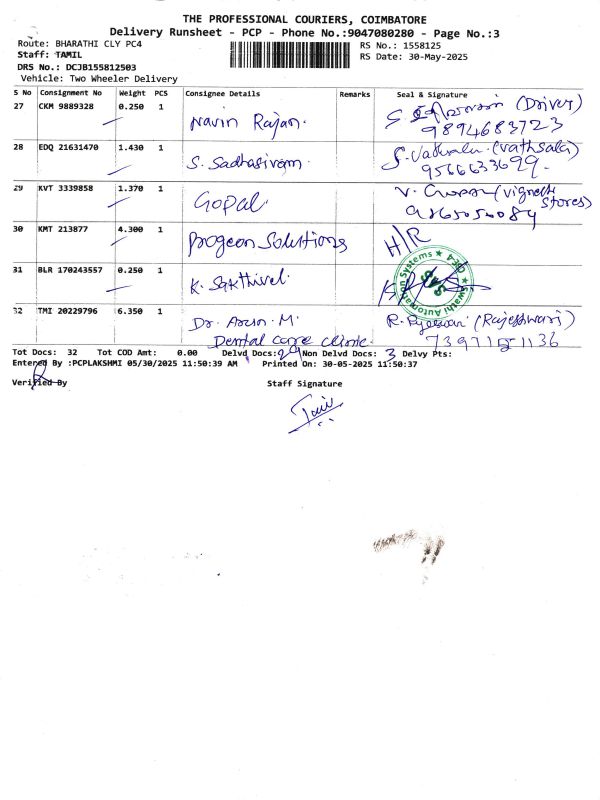 THE PROFESSIONAL COURIERS, COIMBATORE
Delivery Runsheet - PCP - Phone No.:9047080280 - Page No.:3
Route: BHARATHI CLY PC4 RS No.: 1558125
Staff: TAMIL RS Date: 30-May-2025
DRS No.: DCJB155812503
Vehicle: Two Wheeler Delivery
S No Consignment No Weight PCS Consignee Details Remarks Seal & Signature
27 CKM 9889328 0.250 1 Navin Rajan. (Driver)
9894683723
28 EDQ 21631470 1.430 1 S. Sadhasivam. (Vathsala)
9566633699.
29 KVT 3339858 1.370 1 Gopal (Vignesh
Stores)
30 KMT 213877 4.300 1 Progeon Solutions H/R
31 BLR 170243557 0.250 1 K. Sakthivel. Swathi Automation Systems
SAS
32 TMI 20229796 6.350 1 Dr. Arun. M. (Rajeshwari)
Dental care clinic. 7397151136
Tot Docs: 32 Tot COD Amt: 0.00 Delvd Docs: 29 Non Delvd Docs: 3 Delvy Pts:
Entered By :PCPLAKSHMI 05/30/2025 11:50:39 AM Printed On: 30-05-2025 11:50:37
Verified By Staff Signature